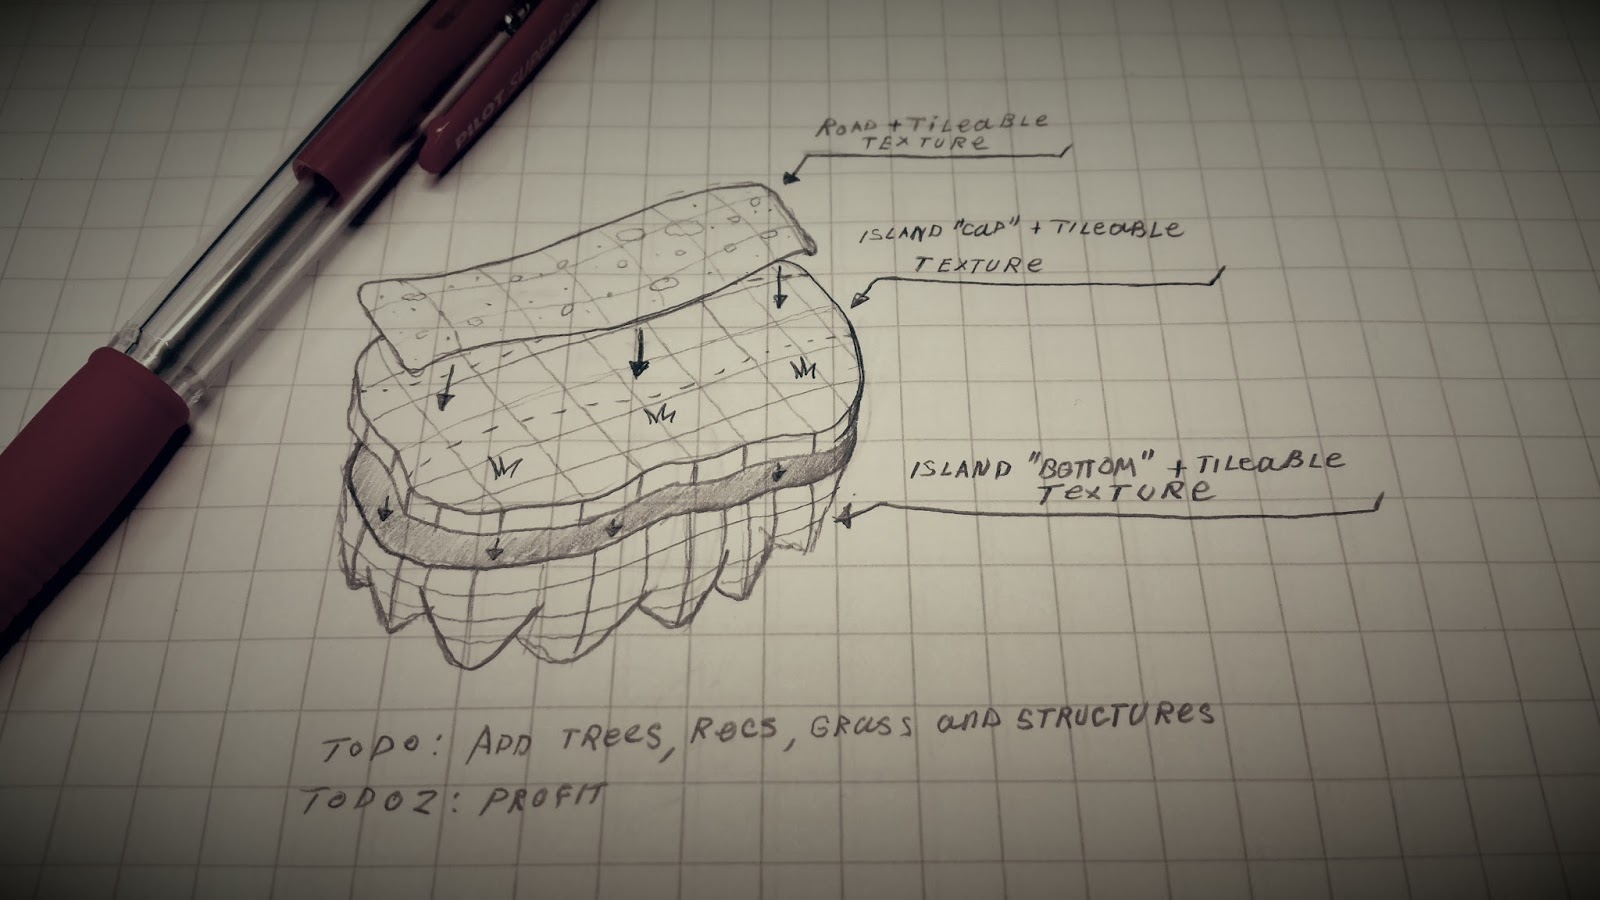 PILOT SUPER
ROAD + TILEABLE
TEXTURE
ISLAND "CAP" + TILEABLE
TEXTURE
ISLAND "BOTTOM" + TILEABLE
TEXTURE
TODO: ADD TREES, ROCS, GRASS AND STRUCTURES
TODO2: PROFIT